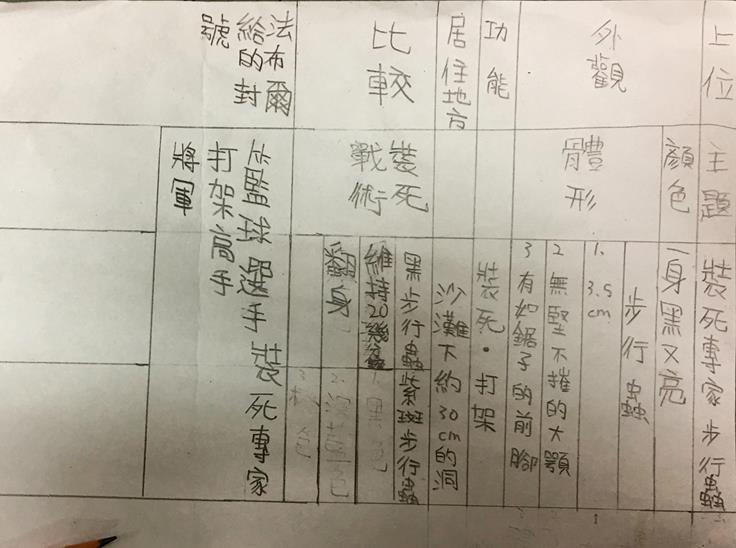 上位
主題
裝死專家步行蟲
外觀
顏色
一身黑又亮
體形
步行蟲
1. 3.5cm
2 無堅不摧的大顎
3 有如鋸子的前腳
功能
裝死·打架
居住地方
沙灘下約30cm的洞
比較
裝死
戰術
黑步行蟲
紫斑步行蟲
維持20幾分
翻身
1.黑色
法布爾
給的封
號
監球選手 裝死專家
打架高手
將軍